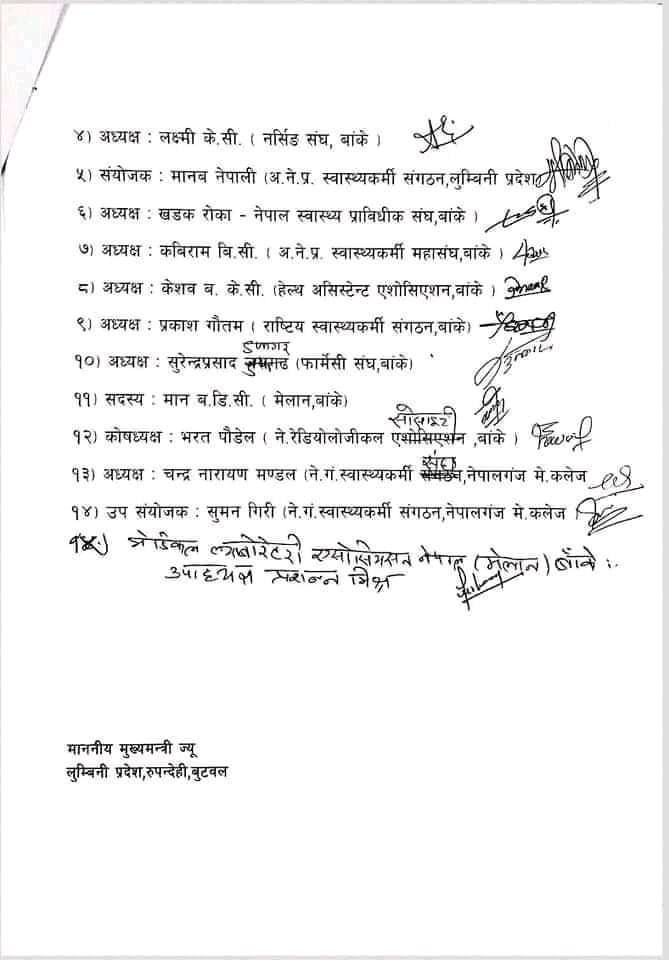 ४) अध्यक्ष : लक्ष्मी के.सी. ( नर्सिङ संघ, बांके )
५) संयोजक : मानब नेपाली (अ.ने.प्र. स्वास्थ्यकर्मी संगठन,लुम्बिनी प्रदेश
६) अध्यक्ष : खडक रोका - नेपाल स्वास्थ्य प्राविधीक संघ,बांके )
७) अध्यक्ष : कबिराम बि.सी. ( अ.ने.प्र. स्वास्थ्यकर्मी महासंघ,बांके )
८) अध्यक्ष : केशव ब. के.सी. (हेल्थ असिस्टेन्ट एशोसिएशन,बांके )
९) अध्यक्ष : प्रकाश गौतम ( राष्टिय स्वास्थ्यकर्मी संगठन,बांके)
१०) अध्यक्ष : सुरेन्द्रप्रसाद (फार्मेसी संघ,बांके)
११) सदस्य : मान ब.डि.सी. ( मेलान,बांके)
सोसाइटी
१२) कोषध्यक्ष : भरत पौडेल ( ने.रेडियोलोजीकल एशोसिएशन ,बांके )
संघ
१३) अध्यक्ष : चन्द्र नारायण मण्डल (ने.गं.स्वास्थ्यकर्मी संगठन,नेपालगंज मे.कलेज
१४) उप संयोजक : सुमन गिरी (ने.गं.स्वास्थ्यकर्मी संगठन,नेपालगंज मे.कलेज
१५) मेडिकल ल्याबोरेटरी एसोसियसन नेपाल (मेलान) बाँके :.
उपाध्यक्ष प्रसन्न मिश्र
माननीय मुख्यमन्त्री ज्यू
लुम्बिनी प्रदेश,रुपन्देही,बुटवल